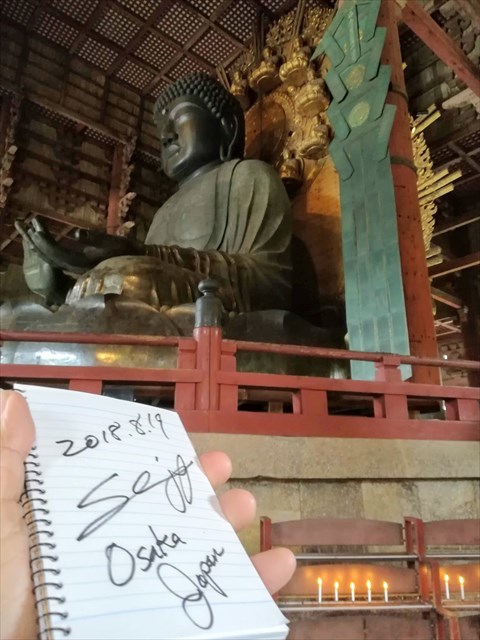 2018.8.19
Osaka
Japan